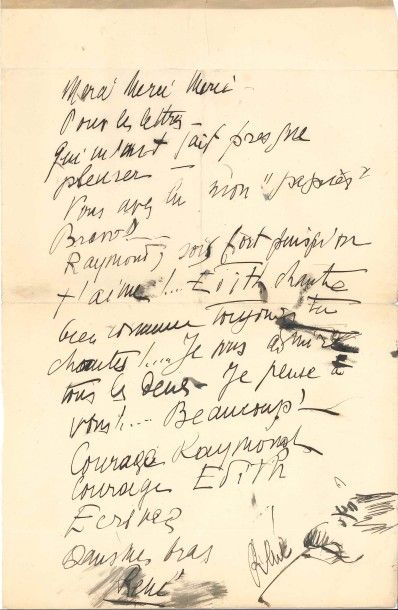 Merci Merci Merci -
Pour les lettres -
qui m'ont fait presque
pleurer -
Vous avez lu mon "papier"
Bravo!
Raymond, sois fort puisqu'on
t'aime!... Edith chante
bien comme toujours tu
chantes!... Je vous admire
tous les deux Je pense à
vous!... Beaucoup!
Courage Raymond
Courage Edith
Ecrivez
Dans mes bras
René